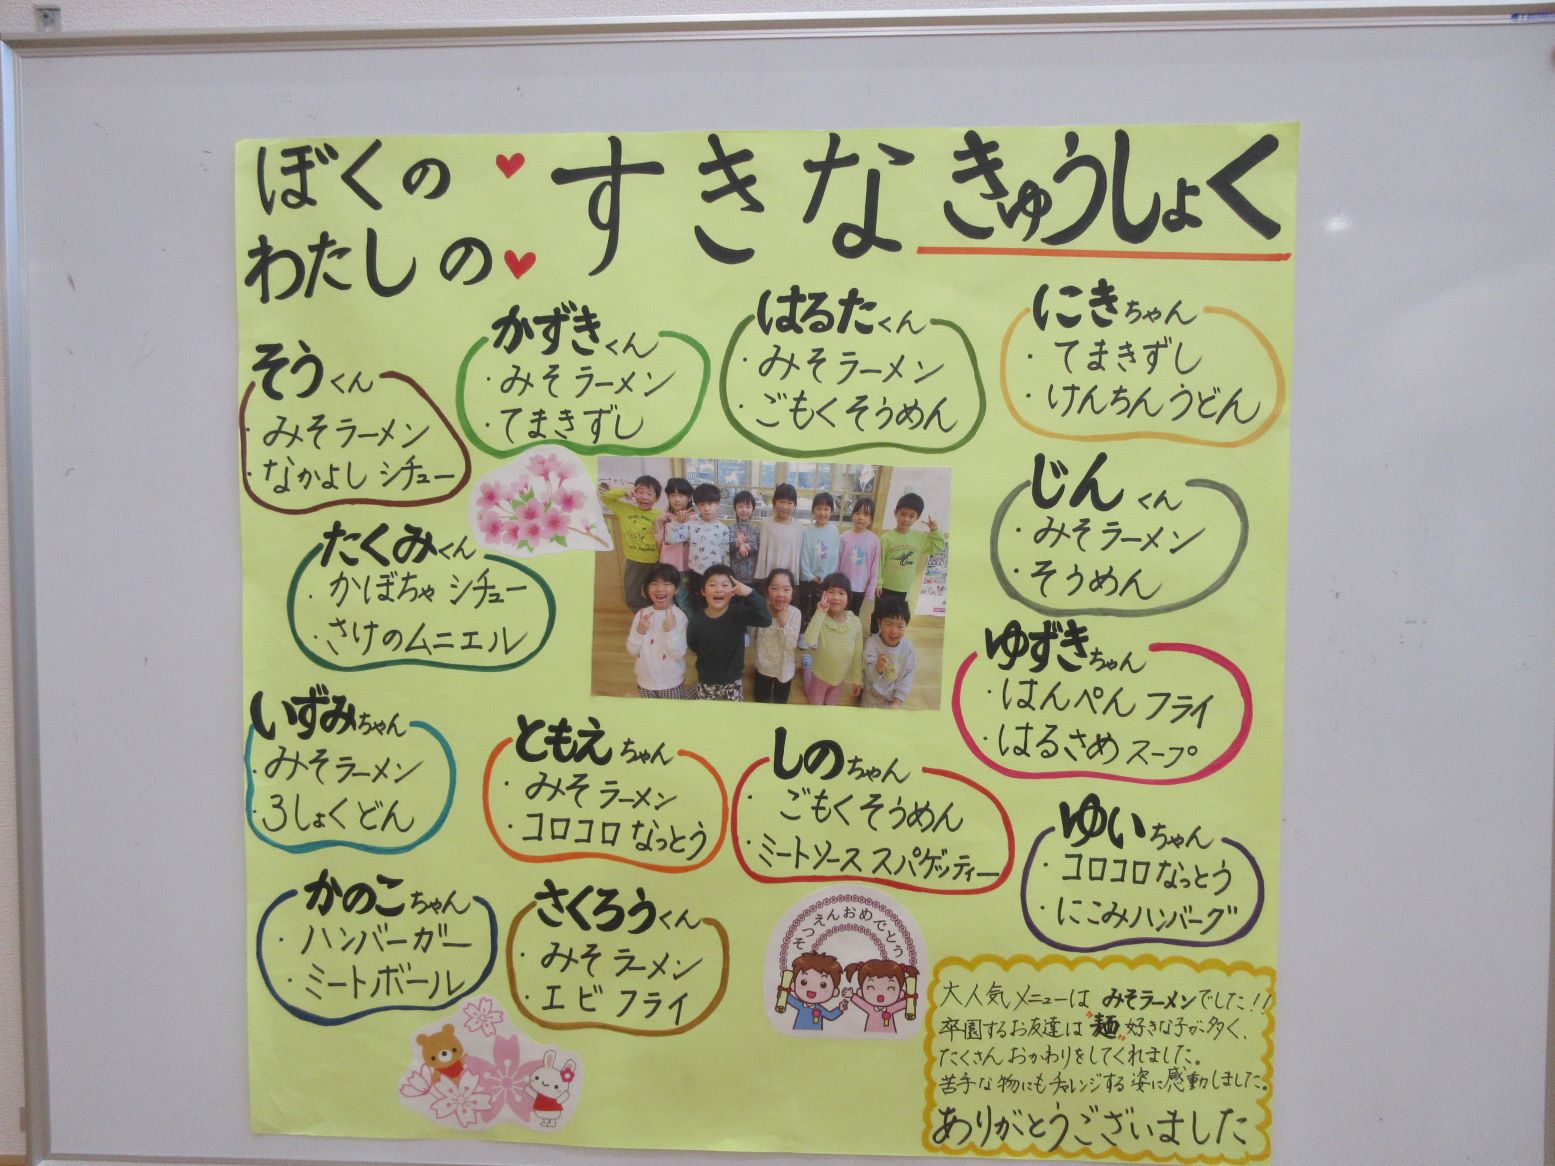 ぼくの
わたしの
すきなきゅうしょく
そうくん
・みそラーメン
・なかよしシチュー
かずきくん
・みそラーメン
・てまきずし
はるたくん
・みそラーメン
・ごもくそうめん
にきちゃん
・てまきずし
・けんちんうどん
たくみくん
・かぼちゃシチュー
・さけのムニエル
じんくん
・みそラーメン
・そうめん
ゆずきちゃん
・はんぺんフライ
・はるさめスープ
いずみちゃん
・みそラーメン
・3しょくどん
ともえちゃん
・みそラーメン
・コロコロなっとう
しのちゃん
・ごもくそうめん
・ミートソーススパゲッティー
ゆいちゃん
・コロコロなっとう
・にこみハンバーグ
かのこちゃん
・ハンバーガー
・ミートボール
さくろうくん
・みそラーメン
・エビフライ
そつえんおめでとう
大人気メニューはみそラーメンでした!!
卒園するお友達は"麺"好きな子が多く、
たくさんおかわりをしてくれました。
苦手な物にもチャレンジする姿に感動しました。
ありがとうございました